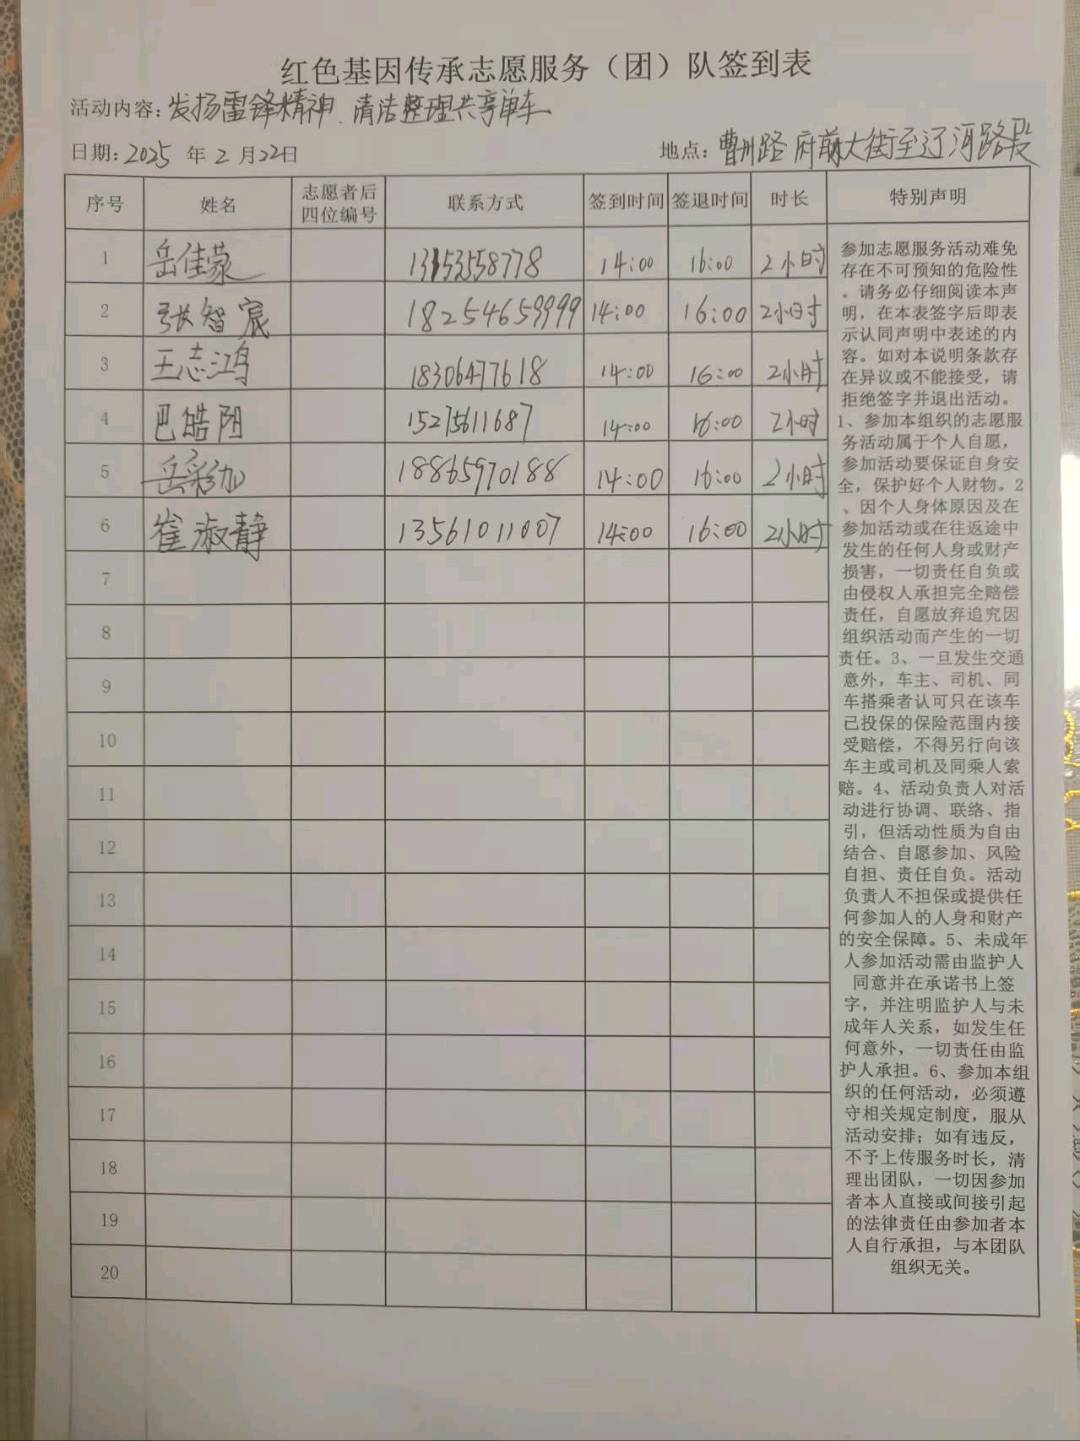 红色基因传承志愿服务（团）队签到表
活动内容：发扬雷锋精神、清洁整理共享单车
日期：2025 年 2 月 22日 地点：曹州路 府前大街至辽河路段
序号 姓名 志愿者后四位编号 联系方式 签到时间 签退时间 时长 特别声明
1 岳佳蒙 13153558778 14:00 16:00 2小时
2 张智宸 18254659999 14:00 16:00 2小时
3 王志鸿 18306477618 14:00 16:00 2小时
4 巴皓阳 15275611687 14:00 16:00 2小时
5 岳彩加 18865970188 14:00 16:00 2小时
6 崔淑静 13561011007 14:00 16:00 2小时
7
8
9
10
11
12
13
14
15
16
17
18
19
20
参加志愿服务活动难免
存在不可预知的危险性
。请务必仔细阅读本声
明，在本表签字后即表
示认同声明中表述的内
容。如对本说明条款存
在异议或不能接受，请
拒绝签字并退出活动。
1、参加本组织的志愿服
务活动属于个人自愿，
参加活动要保证自身安
全，保护好个人财物。2
、因个人身体原因及在
参加活动或在往返途中
发生的任何人身或财产
损害，一切责任自负或
由侵权人承担完全赔偿
责任，自愿放弃追究因
组织活动而产生的一切
责任。3、一旦发生交通
意外，车主、司机、同
车搭乘者认可只在该车
已投保的保险范围内接
受赔偿，不得另行向该
车主或司机及同乘人索
赔。4、活动负责人对活
动进行协调、联络、指
引，但活动性质为自由
结合、自愿参加、风险
自担、责任自负。活动
负责人不担保或提供任
何参加人的人身和财产
的安全保障。5、未成年
人参加活动需由监护人
同意并在承诺书上签
字，并注明监护人与未
成年人关系，如发生任
何意外，一切责任由监
护人承担。6、参加本组
织的任何活动，必须遵
守相关规定制度，服从
活动安排；如有违反，
不予上传服务时长，清
理出团队，一切因参加
者本人直接或间接引起
的法律责任由参加者本
人自行承担，与本团队
组织无关。